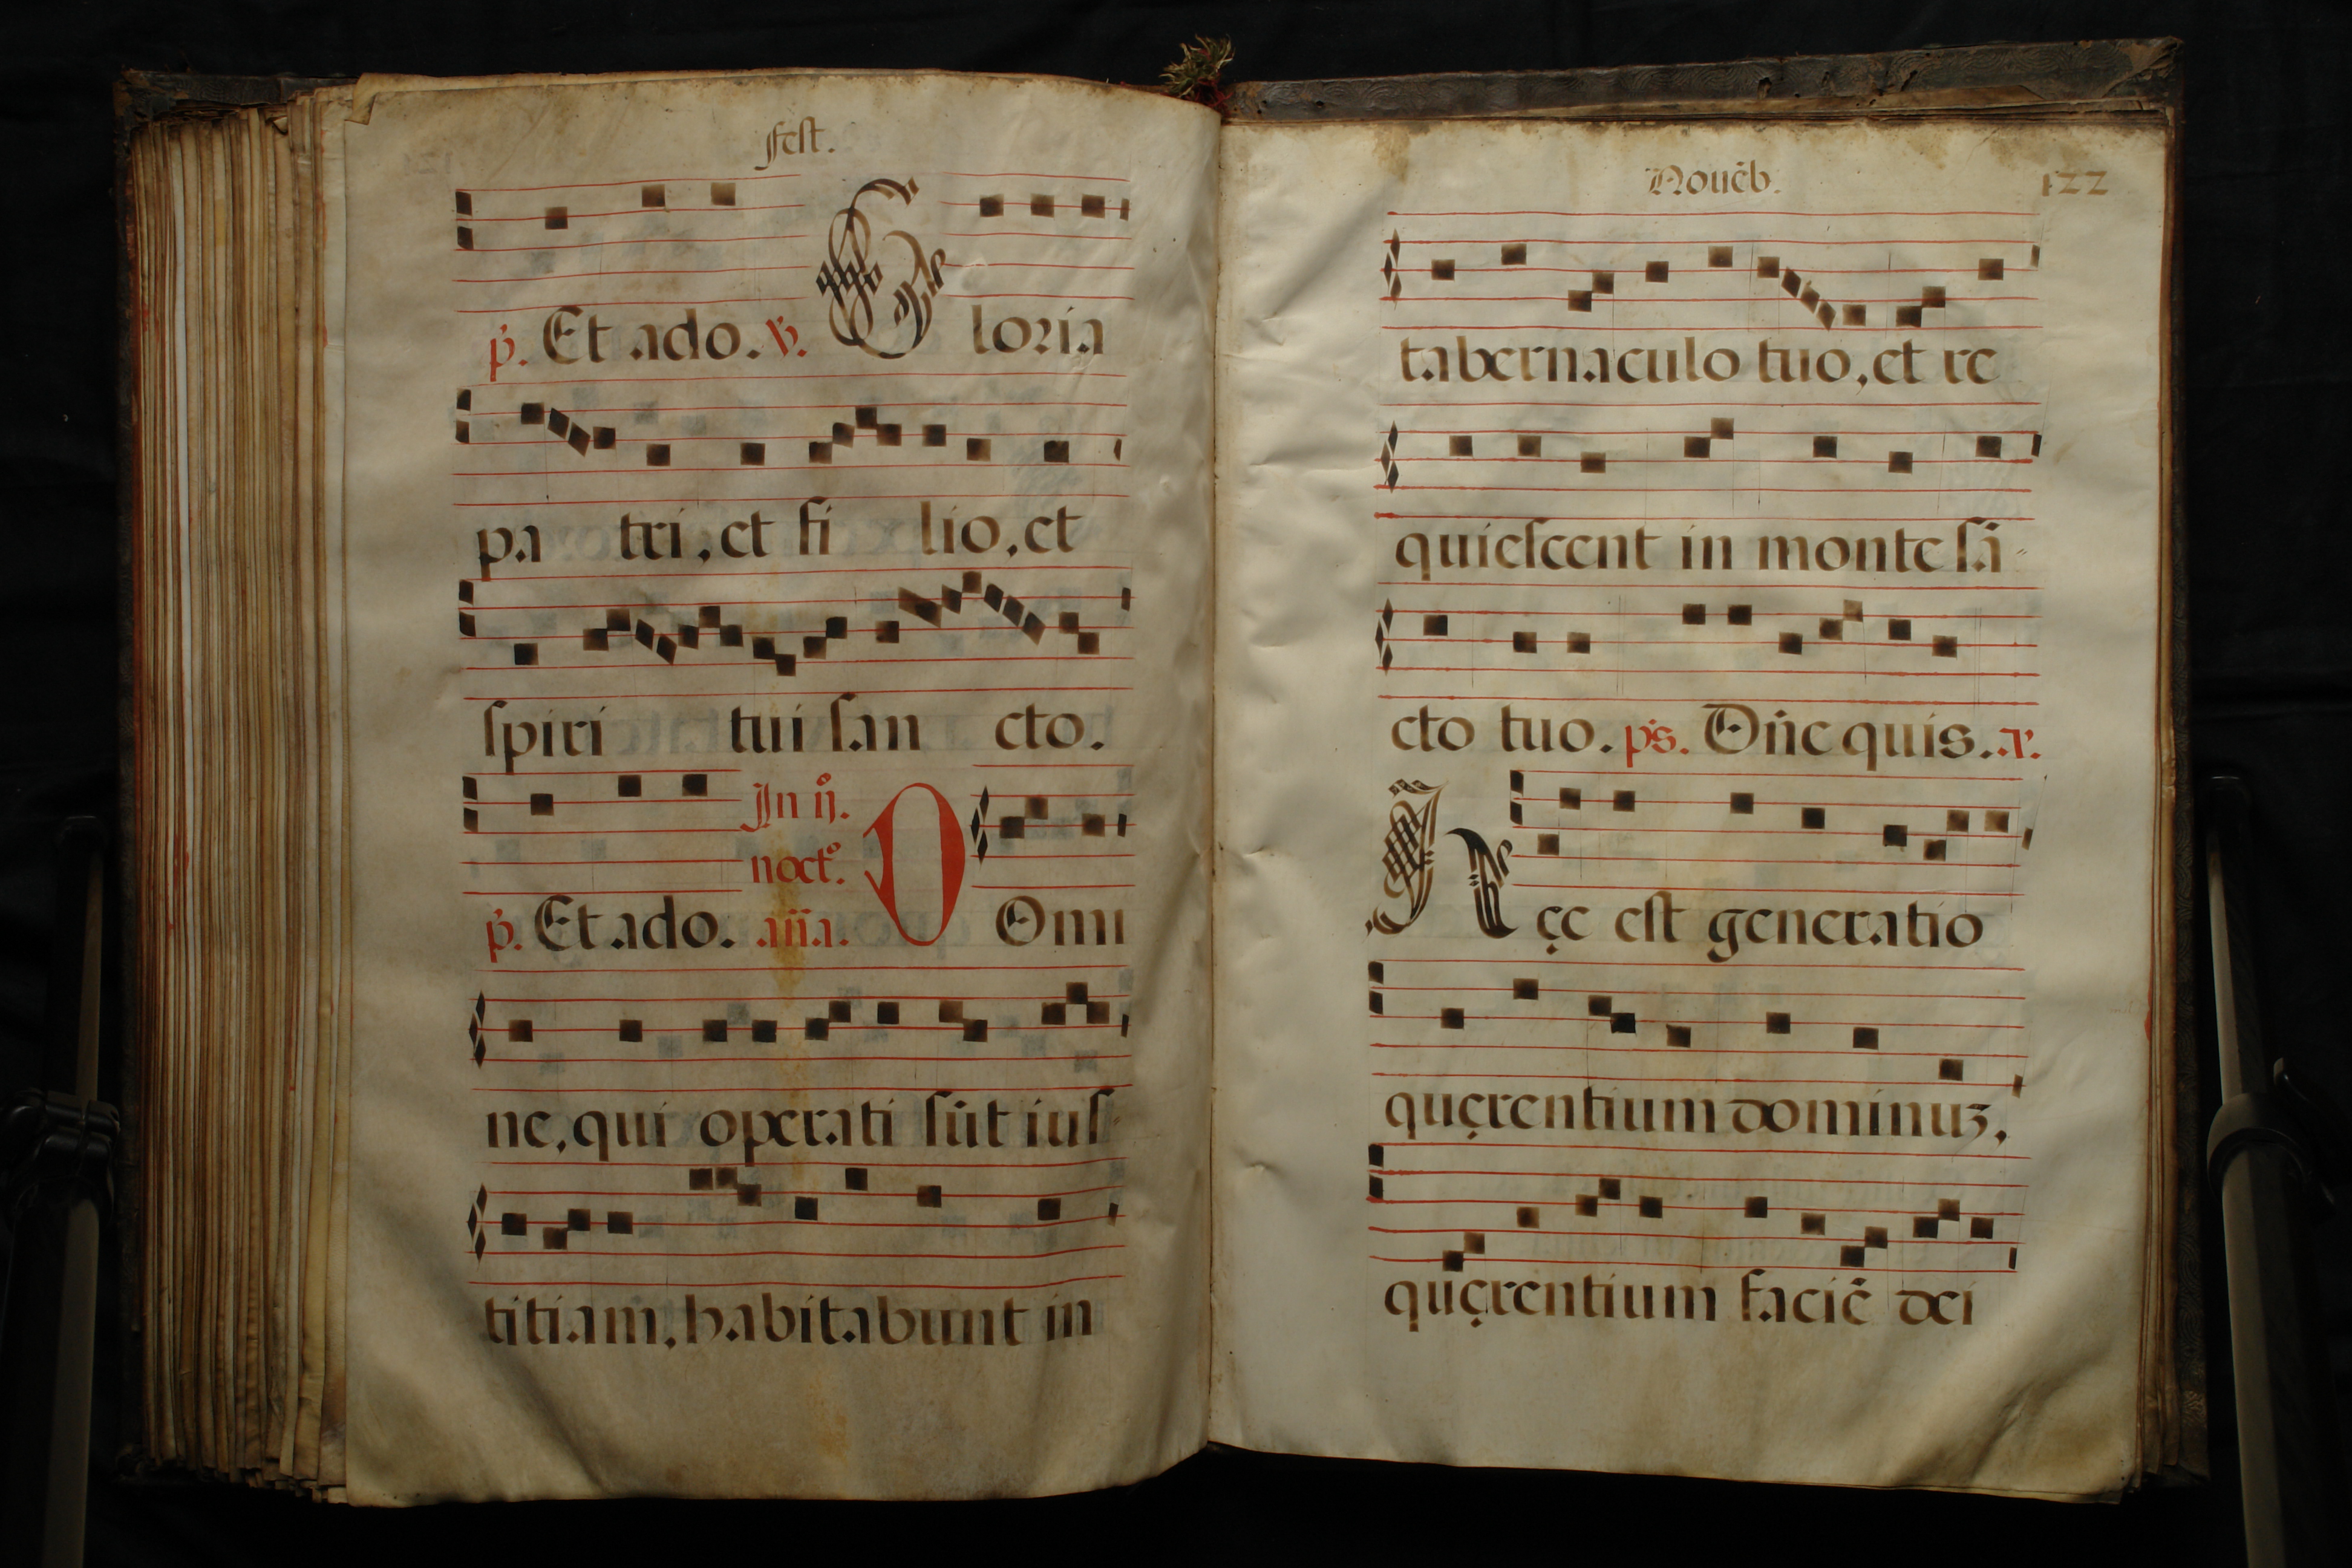 Fest.
p̃. Et ado. ℣. Gloria
pa tri, et fi lio, et
ſpiri tui ſan cto.
In ij.
noct.
p̃. Et ado. aña. DOmi
ne, qui operati ſūt iuſ-
titiam, habitabunt in
Nouēb.
122
tabernaculo tuo, et re
quieſcent in monte ſā-
cto tuo. ps. Dñe quis. a.
Hęc eſt generatio
quęrentium dominuʒ,
quęrentium faciē dei